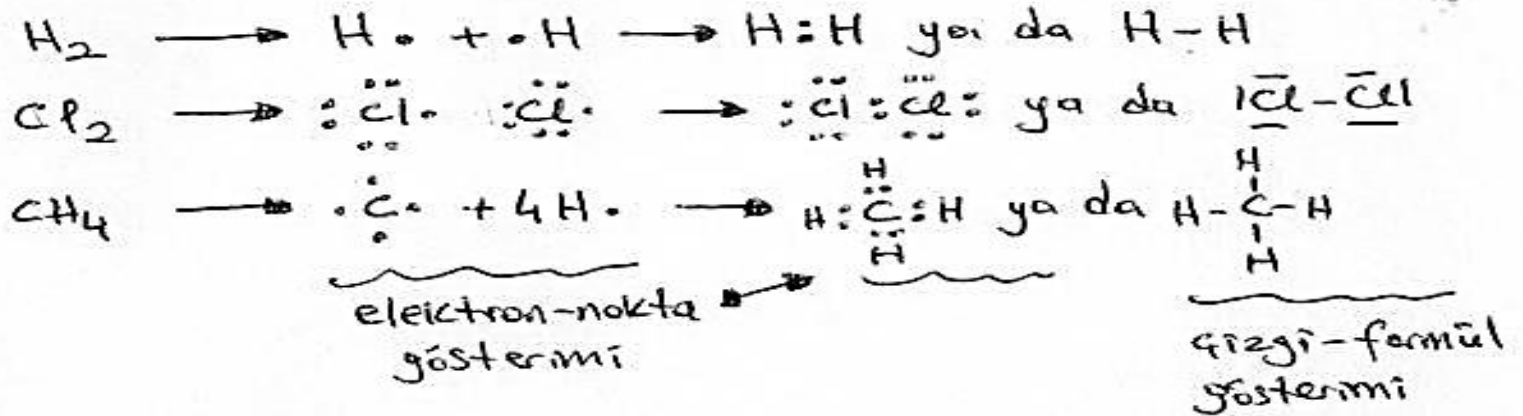 H₂ → H· + ·H → H:H ya da H-H
Cl₂ → :C̈l· :C̈l· → :C̈l:C̈l: ya da |C̅l-C̅l|
CH₄ → ·C· + 4H· → H:C:H ya da H-C-H
H H
H H
elektron-nokta gösterimi
çizgi-formül gösterimi